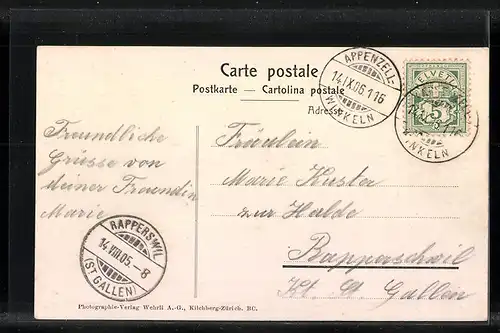 Carte postale
Postkarte — Cartolina postale
Adresse
APPENZELL-
14.IX.06.1.16
WINKELN
HELVETIA
5
WINKELN
Freundliche
Grüsse von
deiner Freundin
Marie
Fräulein
Marie Kuster
zur Halde
Rapperschwil
Kt. St. Gallen
RAPPERSWIL
14.VIII.05.-8
(ST GALLEN)
Photographie-Verlag Wehrli A.-G., Kilchberg-Zürich. BC.